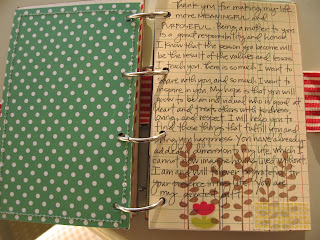 Thank you for making my life
more MEANINGFUL and
PURPOSEFUL. Being a mother to you
is a great responsibility and honor.
I know that the person you become will
be the result of the values and lessons
I teach you. There is so much I want to
share with you and so much I want to
inspire in you. My hope is that you will
grow to be an individual who is good at
heart and treats others with kindness,
caring and respect. I will help you to
find those things that fulfill you and
bring you happiness. You have already
added dimensions to my life which I
cannot now imagine having lived without
I am and will forever be grateful
your presence in my life. You are
my greatest gift.